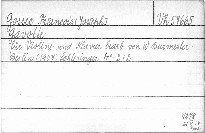 Gossec François (Joseph) Vh 54665
Gavotte
Für Violine und Klavier bearb. von W. Burmester
Berlin (1904) Schlesinger